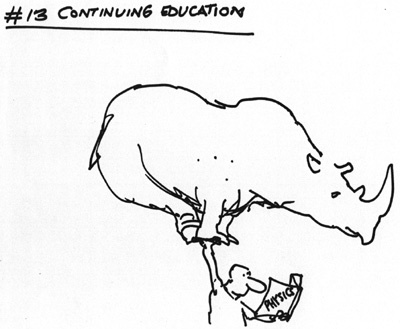 #13 CONTINUING EDUCATION
PHYSICS